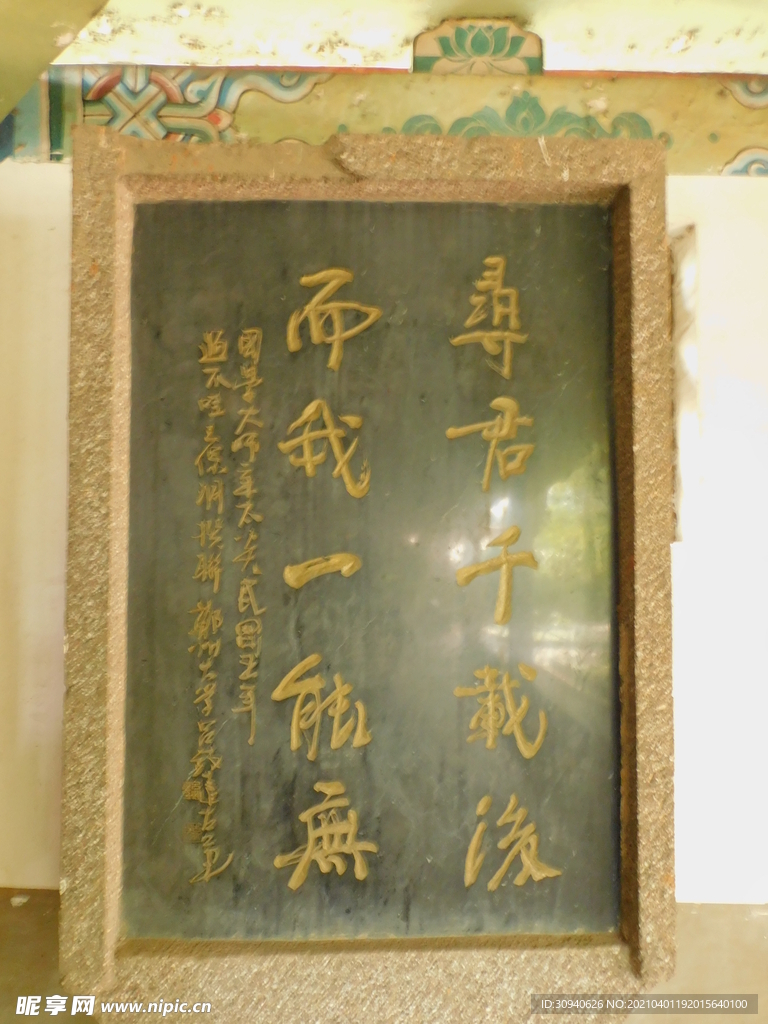 尋君千載後
而我一能無
國學大師章太炎民國五年
過 撰聯 鄭州大學
昵享网 www.nipic.cn
ID:30940626 NO:20210401192015640100